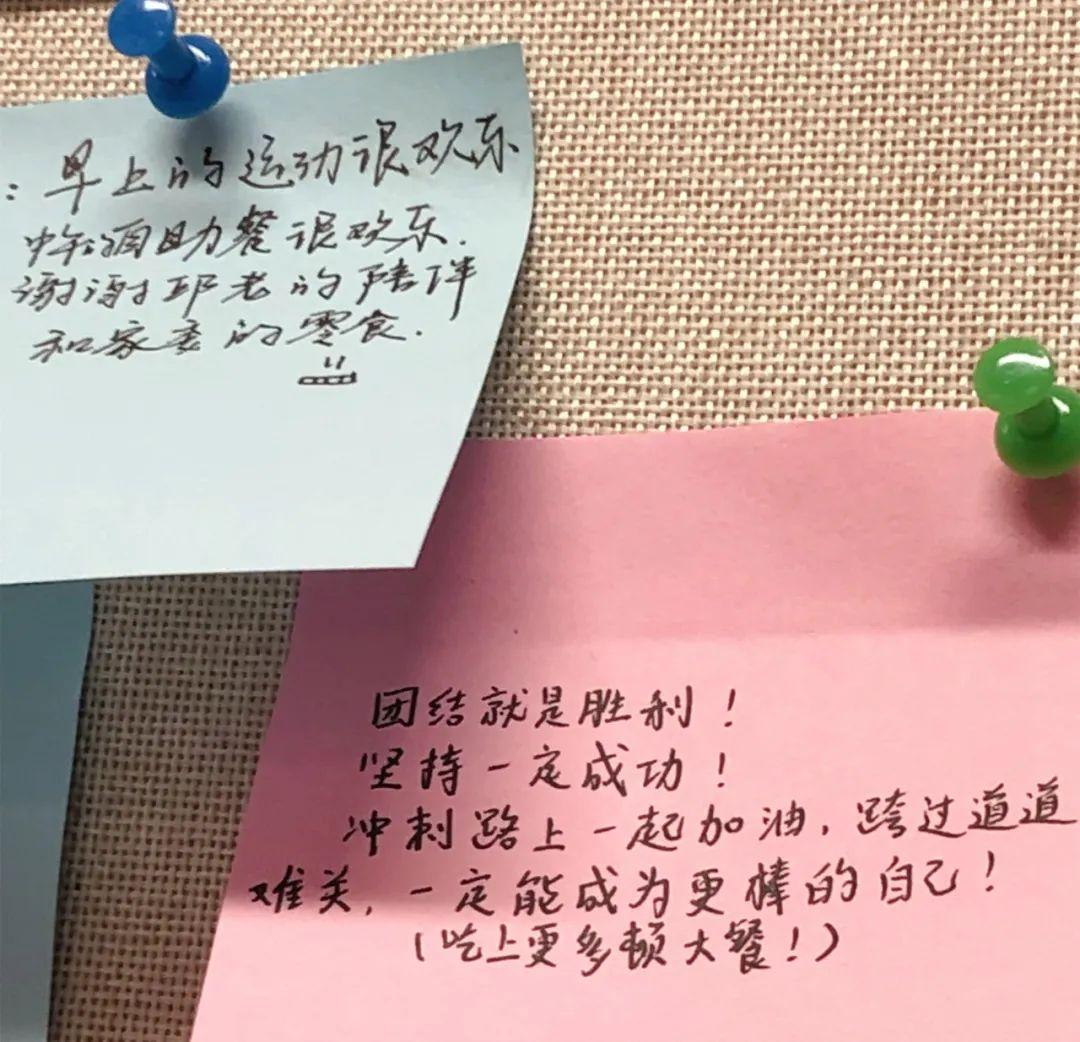 ：早上的运动很欢乐
中午的自助餐很欢乐.
谢谢邱老的陪伴
和家委的零食.
团结就是胜利！
坚持一定成功！
冲刺路上一起加油，跨过道道
难关，一定能成为更棒的自己！
（吃上更多顿大餐！）